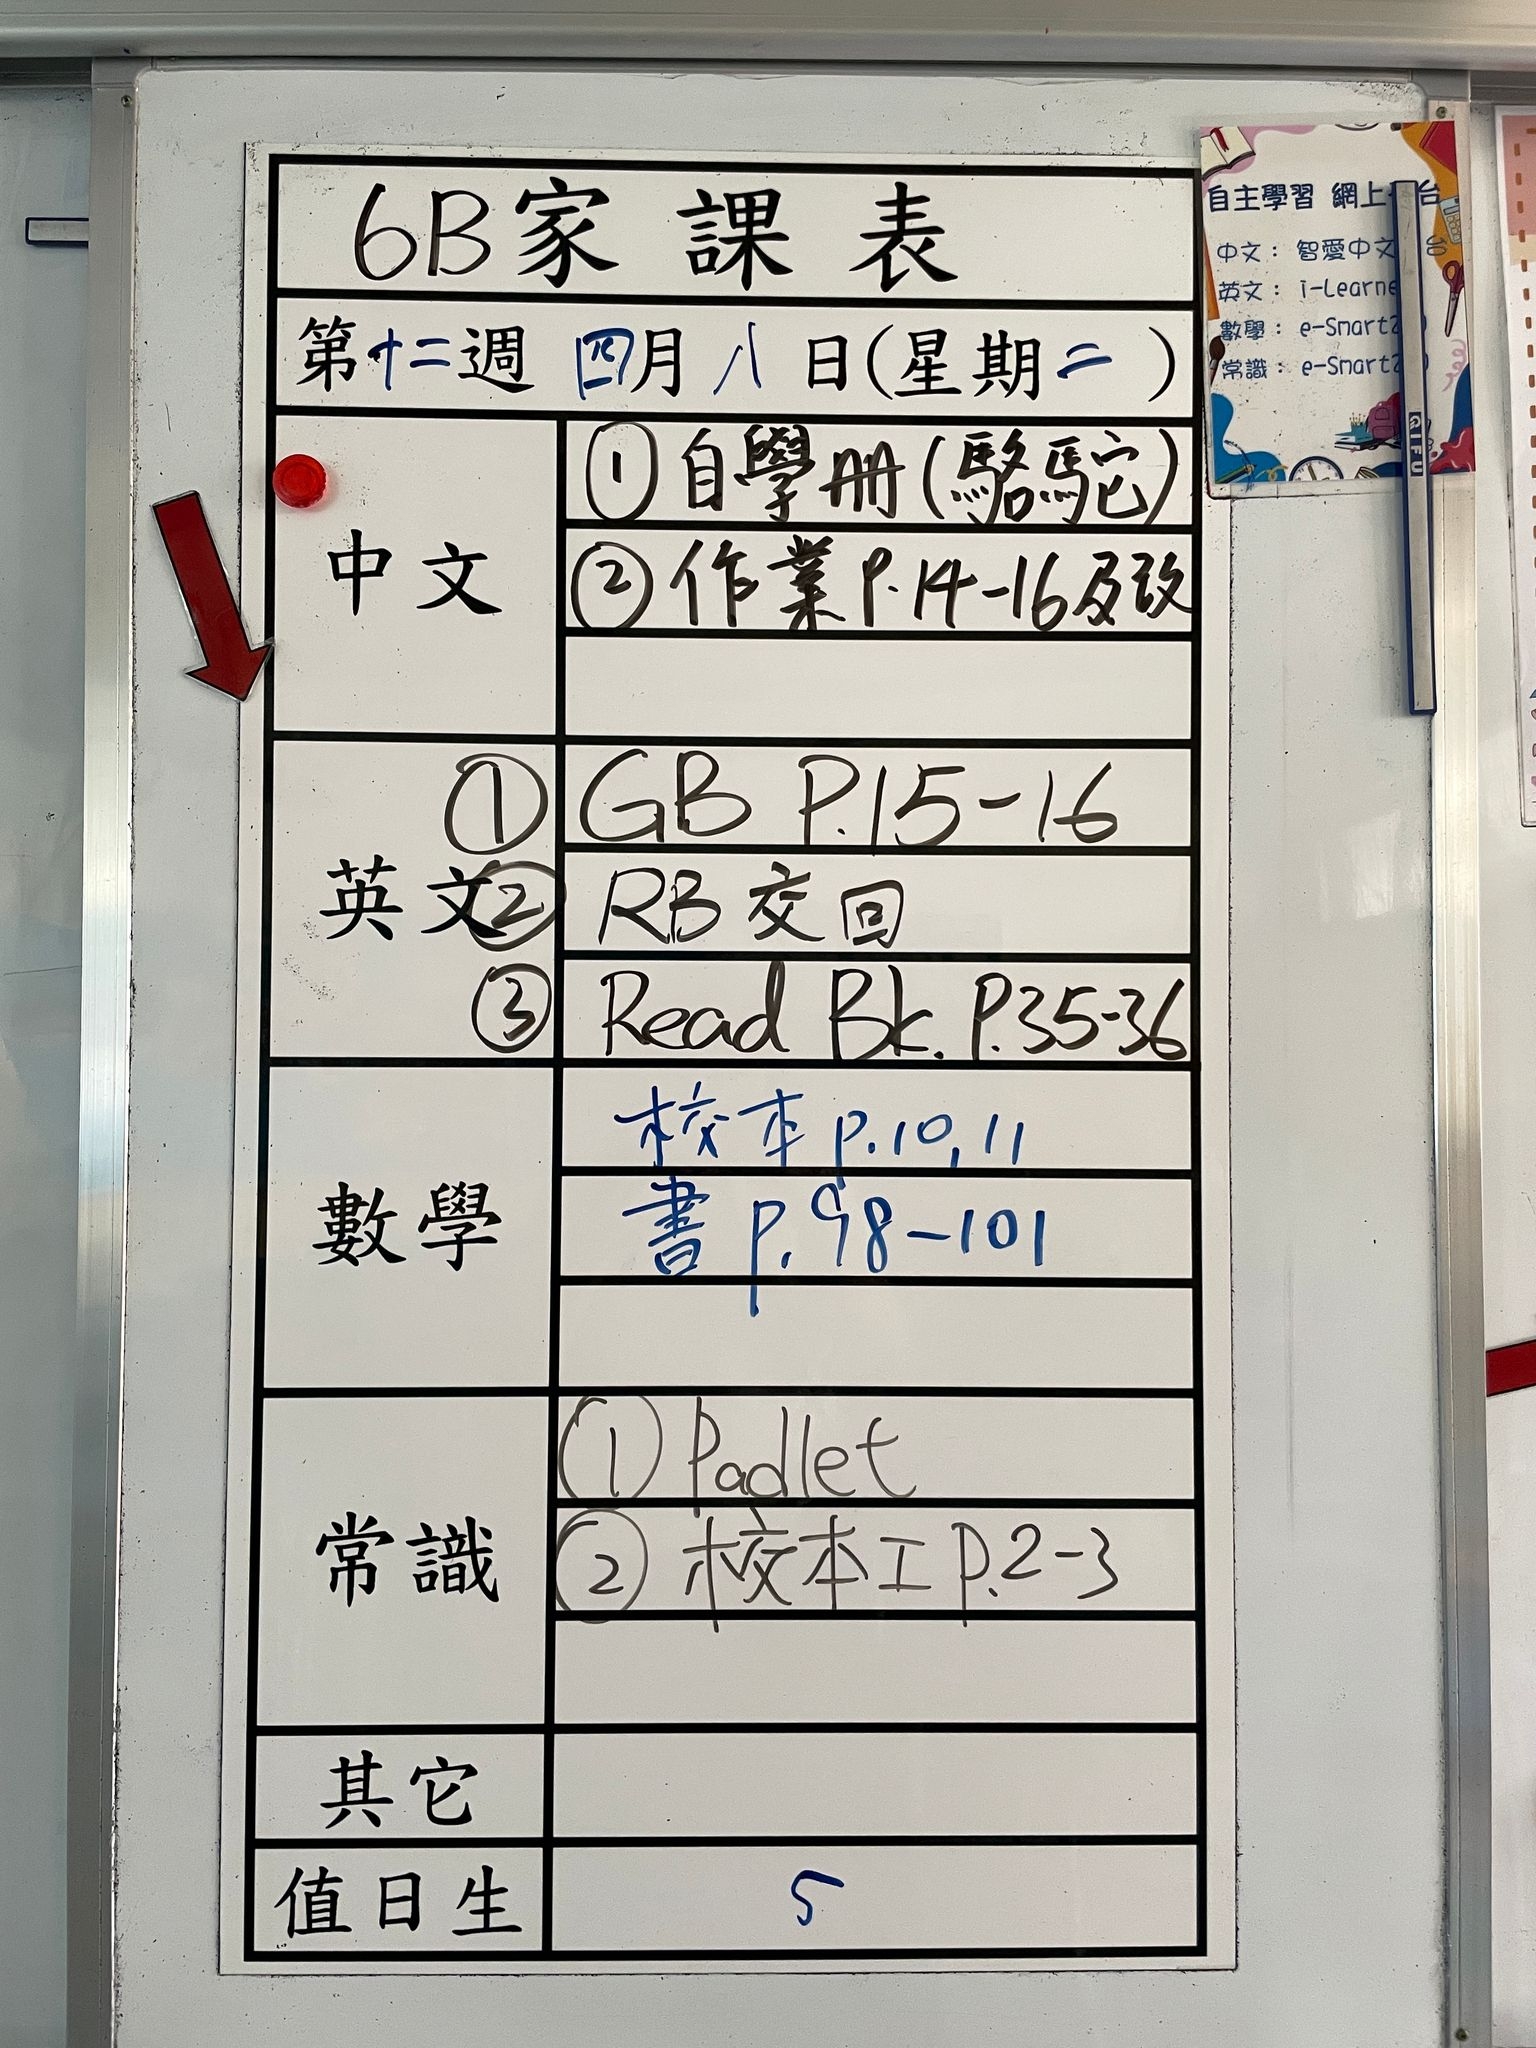 6B家課表
第十二週 四月八日(星期二)
中文
① 自學冊(駱駝)
② 作業P.14-16及改
英文
① GB P.15-16
② RB 交回
③ Read Bk. P.35-36
數學
校本 p.10,11
書 p.98-101
常識
① Padlet
② 校本工 P.2-3
其它
值日生
5
自主學習 網上 台
中文： 智愛中文
英文： i-Learne
數學： e-Smart
常識： e-Smart
GIFU